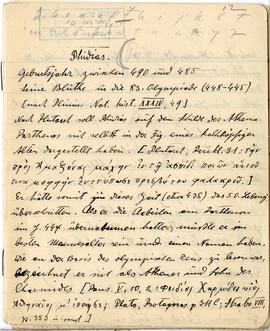 Phidias.
Geburtsjahr zwischen 490 und 485.
Seine Blüthe in die 83. Olympiade (448-445)
[nach Plinius Nat. hist. XXXIV, 49]
Nach Plutarch soll Phidias auf dem Schilde der Athena
Parthenos sich selbst in der Fig. eines kahlköpfigen
Alten dargestellt haben. [Plutarch, Perikl. 31:
πρὸς Ἀμαζόνας μάχην ἐν τῇ ἀσπίδι ποιῶν αὑτοῦ
τινα μορφὴν ἐνετύπωσε πρεσβύτου φαλακροῦ.]
Er hätte somit in dieser Zeit (etwa 438) das 50. Lebensj.
überschritten. Als er die Arbeiten am Parthenon
im J. 447 übernommen hatte, musste er im
besten Mannesalter sein und einen Namen haben.
bezeichnet er sich als Athener und Sohn des
Charmides [Paus. V, 10, 2: Φειδίας Χαρμίδου υἱὸς
Ἀθηναῖός μ' ἐποίησε; Plato, Protagoras p 311 C; Strabo VIII
p. 353 u. sonst]